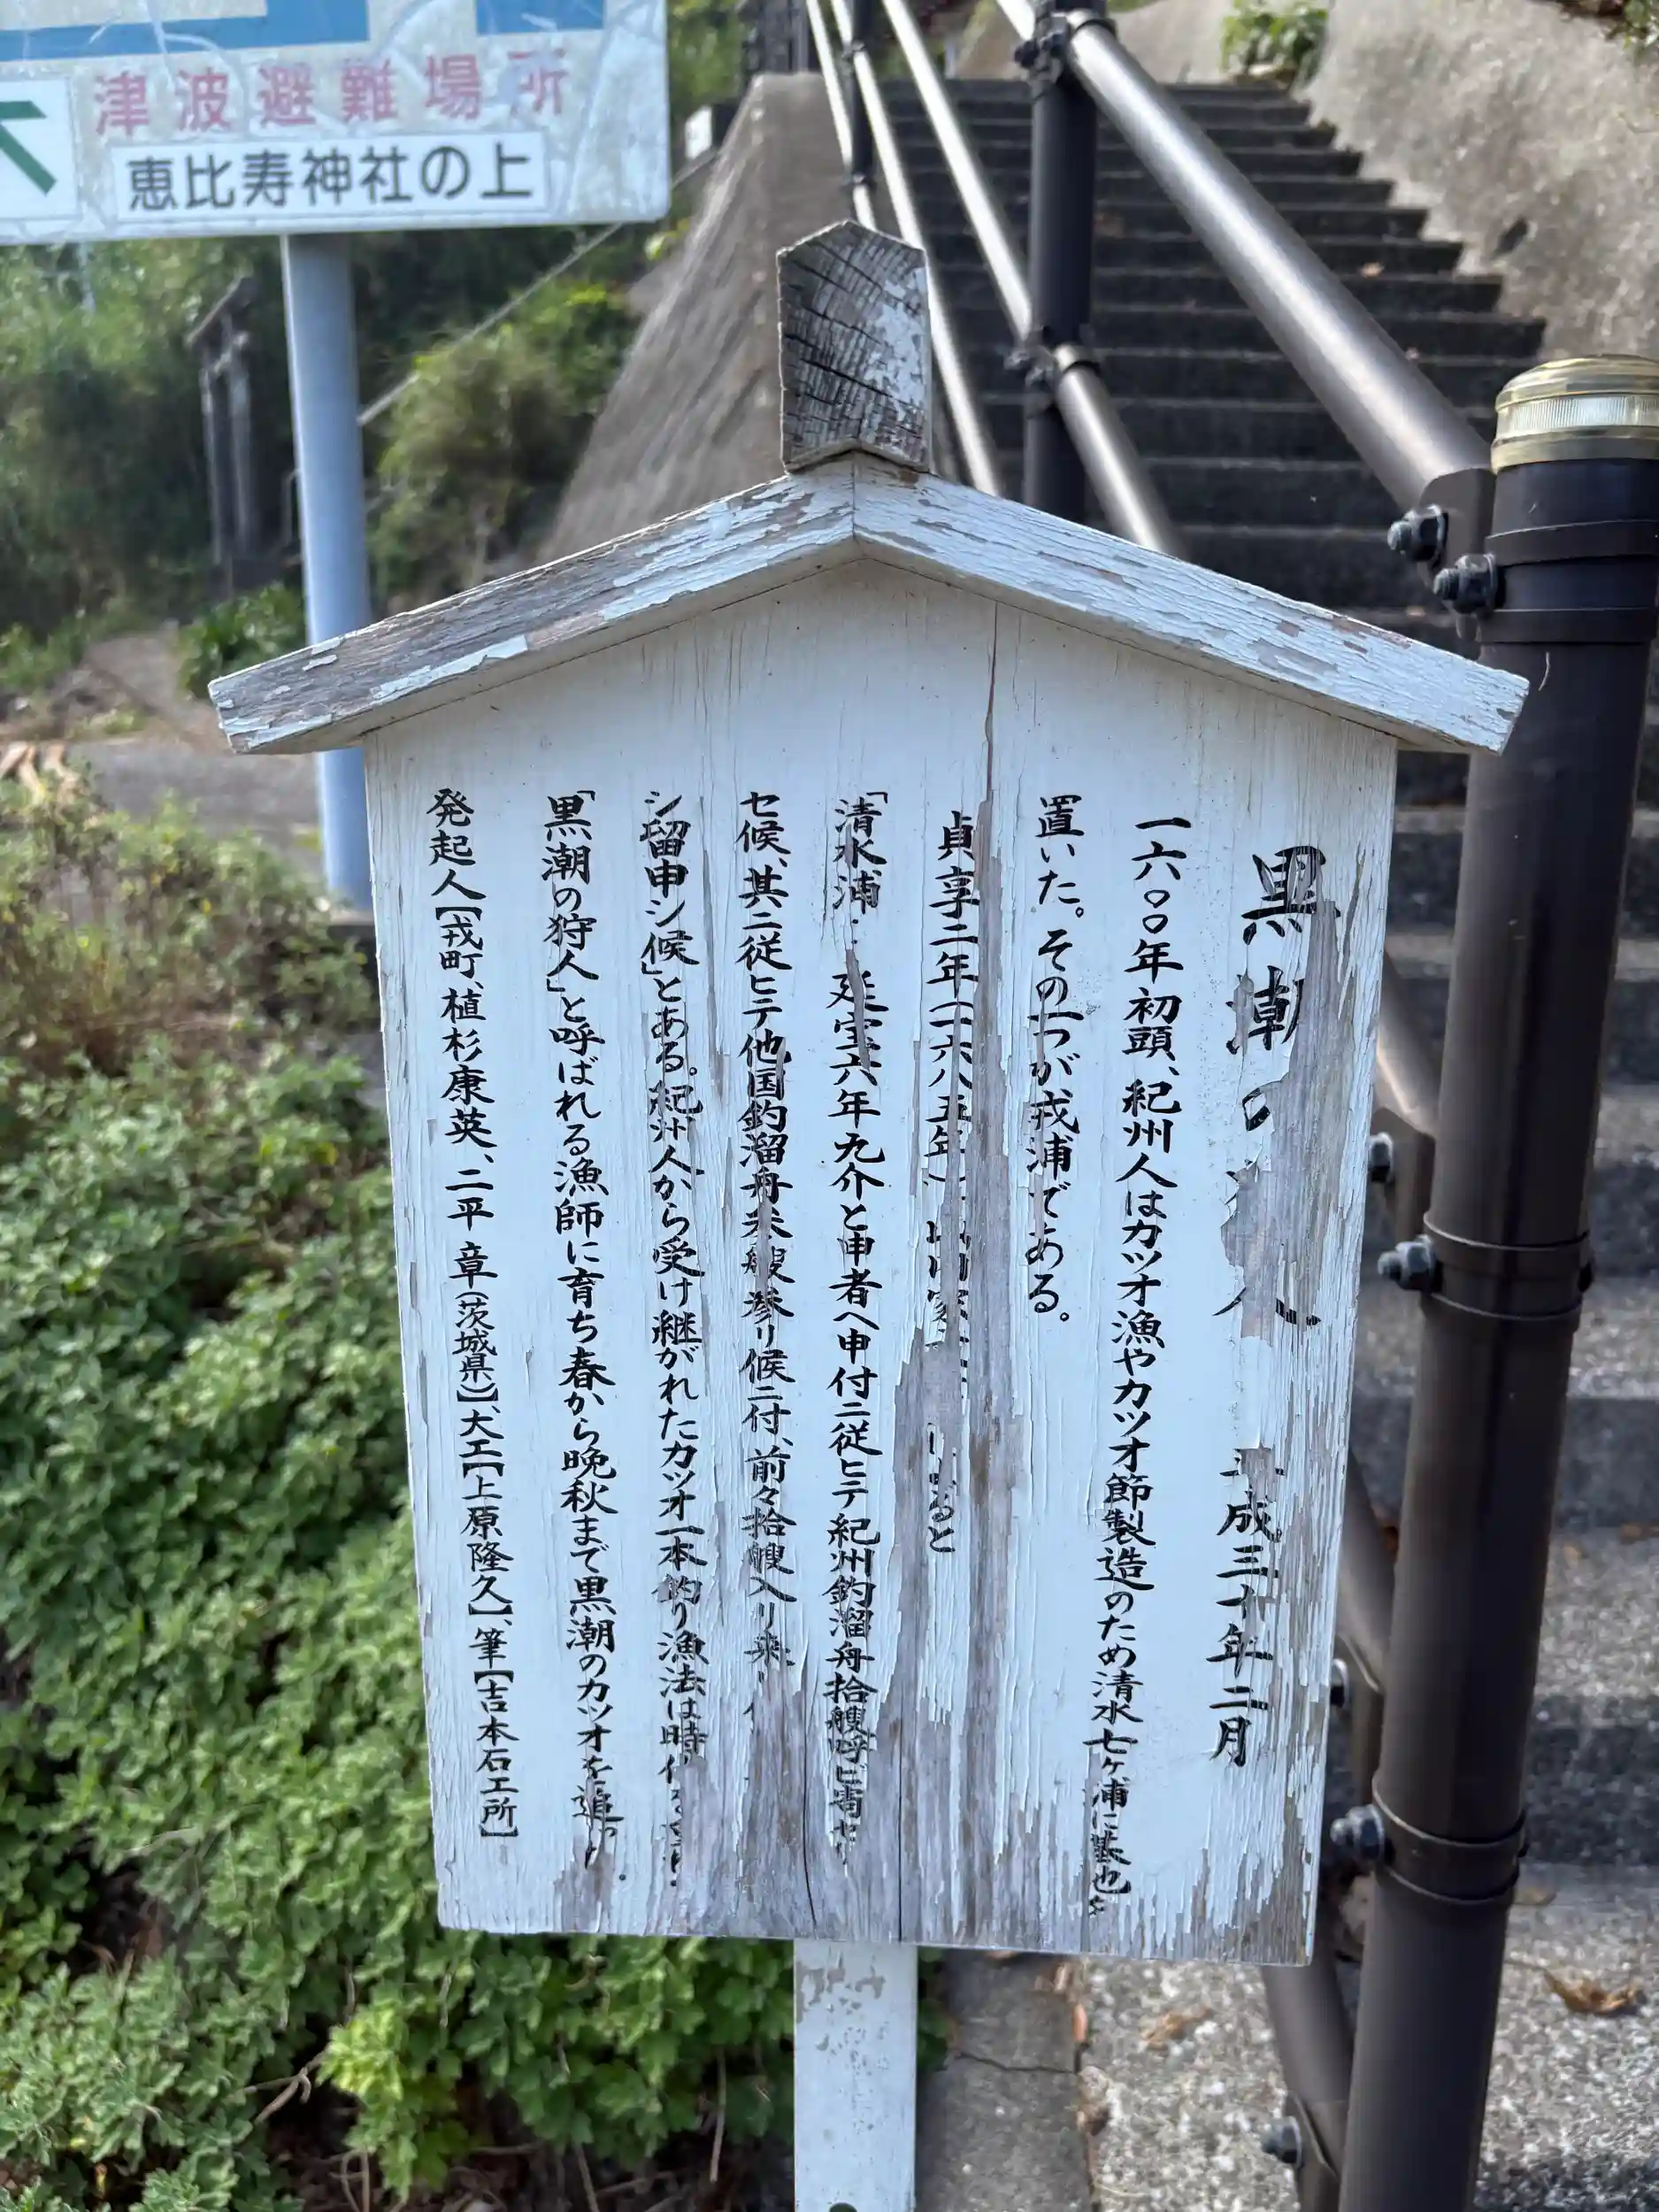 津波避難場所
恵比寿神社の上
黒潮の 人 平成三十年二月
一六〇〇年初頭、紀州人はカツオ漁やカツオ節製造のため清水七ヶ浦に
置いた。その一つが戎浦である。
貞享二年(一六八五年) 山内家 ると
「清水浦・・延宝六年九介と申者へ申付ニ従ヒテ紀州釣溜舟拾艘呼ヒ寄セ
セ候、其ニ従ヒテ他国釣溜舟 艘参リ候ニ付、前々拾艘入リ来
シ留申シ候」とある。紀州人から受け継がれたカツオ一本釣り漁法は時代
「黒潮の狩人」と呼ばれる漁師に育ち春から晩秋まで黒潮のカツオを追
発起人【戎町、植杉康英、二平 章(茨城県)】、大工【上原隆久】、筆【吉本石工所】